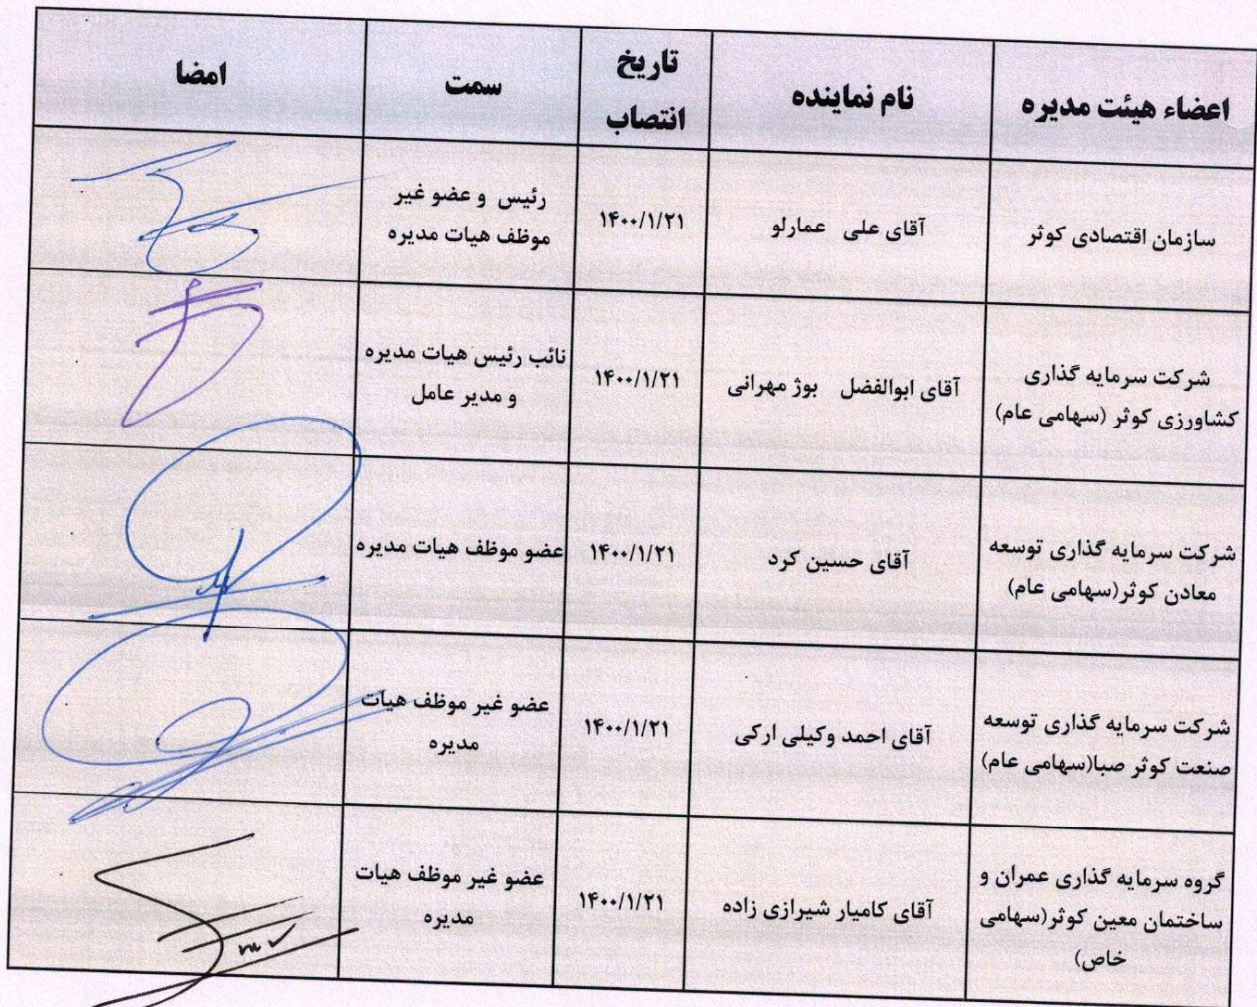 اعضاء هیئت مدیره
نام نماینده
تاریخ
انتصاب
سمت
امضا
سازمان اقتصادی کوثر
آقای علی عمارلو
۱۴۰۰/۱/۲۱
رئیس و عضو غیر
موظف هیات مدیره
شرکت سرمایه گذاری
کشاورزی کوثر (سهامی عام)
آقای ابوالفضل بوژ مهرانی
۱۴۰۰/۱/۲۱
نائب رئیس هیات مدیره
و مدیر عامل
شرکت سرمایه گذاری توسعه
معادن کوثر(سهامی عام)
آقای حسین کرد
۱۴۰۰/۱/۲۱
عضو موظف هیات مدیره
شرکت سرمایه گذاری توسعه
صنعت کوثر صبا(سهامی عام)
آقای احمد وکیلی ارکی
۱۴۰۰/۱/۲۱
عضو غیر موظف هیات
مدیره
گروه سرمایه گذاری عمران و
ساختمان معین کوثر(سهامی
خاص)
آقای کامیار شیرازی زاده
۱۴۰۰/۱/۲۱
عضو غیر موظف هیات
مدیره